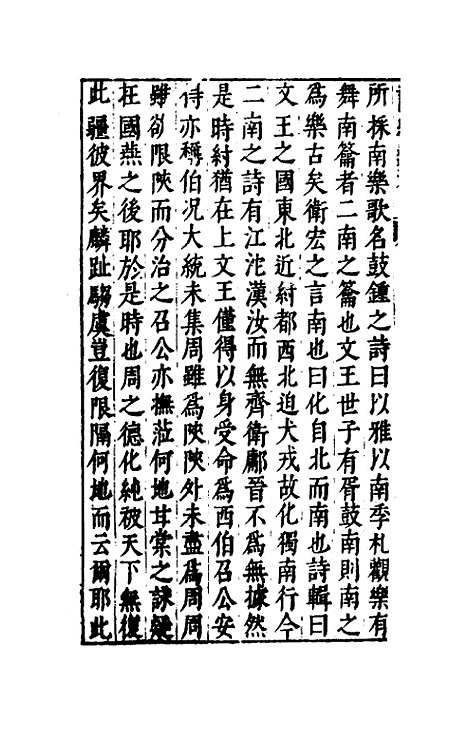 所採南樂歌名鼓鍾之詩曰以雅以南季札觀樂有
舞南籥者二南之籥也文王世子有胥鼓南則南之
為樂古矣衛宏之言南也曰化自北而南也詩輯曰
文王之國東北近紂都西北迫犬戎故化獨南行今
二南之詩有江沱漢汝而無齊衛鄘晉不為無據然
是時紂猶在上文王僅得以身受命為西伯召公安
得亦稱伯况大統未集周雖為陝陝外未盡為周周
雖欲限陝而分治之召公亦撫蒞何地甘棠之詠疑
在國燕之後耶於是時也周之德化純被天下無復
此疆彼界矣麟趾騶虞豈復限隔何地而云爾耶此